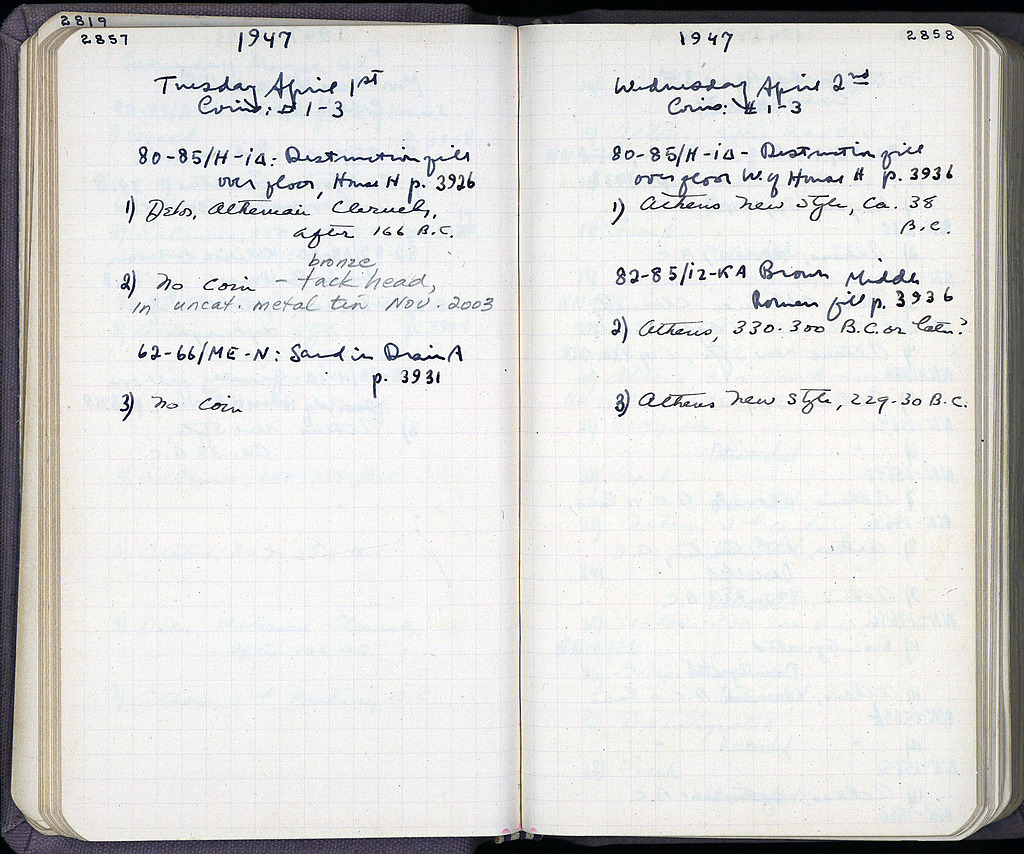 2819
2857
1947
Tuesday April 1st
Coins: # 1-3
80-85/H-IΔ: Destruction fill
over floor, House H p. 3926
1) Delos, Athenian Cleruchs,
after 166 B.C.
bronze
2) No coin - tack head,
in uncat metal tin NOV. 2003
62-66/ME-N: Sand in Drain A
p. 3931
3) No coin
1947
2858
Wednesday April 2nd
Coins: # 1-3
80-85/H-IΔ- Destruction fill
over floor W. of House H p. 3936
1) Athens New Style, Ca. 38
B.C.
82-85/IZ-KA Brown Middle
Roman fill p. 3936
2) Athens, 330-300 B.C. or later?
3) Athens New Style, 229-30 B.C.